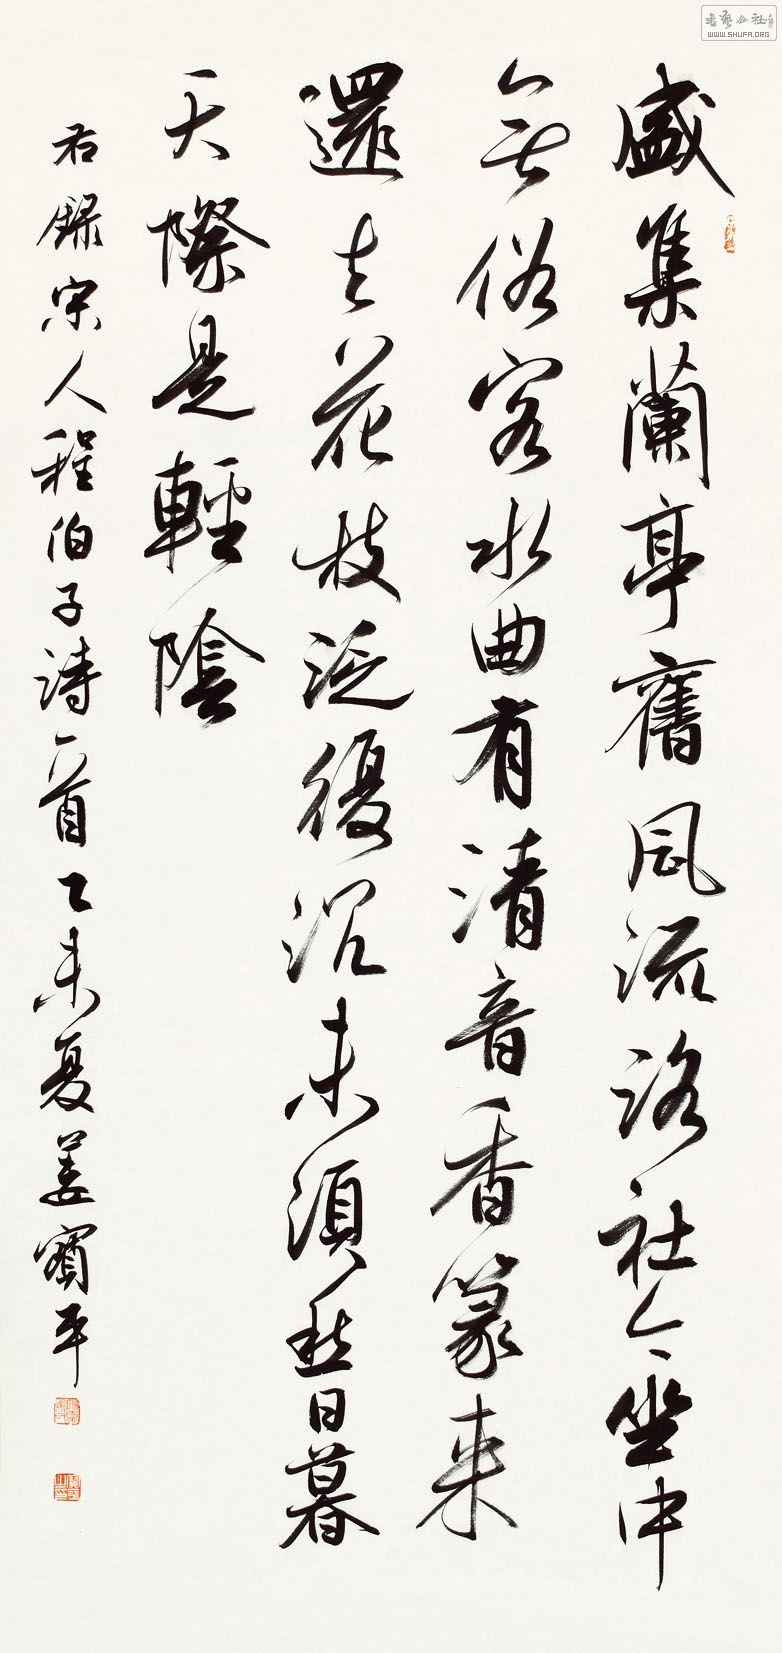 盛集蘭亭舊風流洛社今坐中
無俗客水曲有清音香篆来
還去花枝泛復沉未須愁日暮
天際是輕陰
右録宋人程伯子詩一首乙未夏姜寶平
書藝公社
WWW.SHUFA.ORG